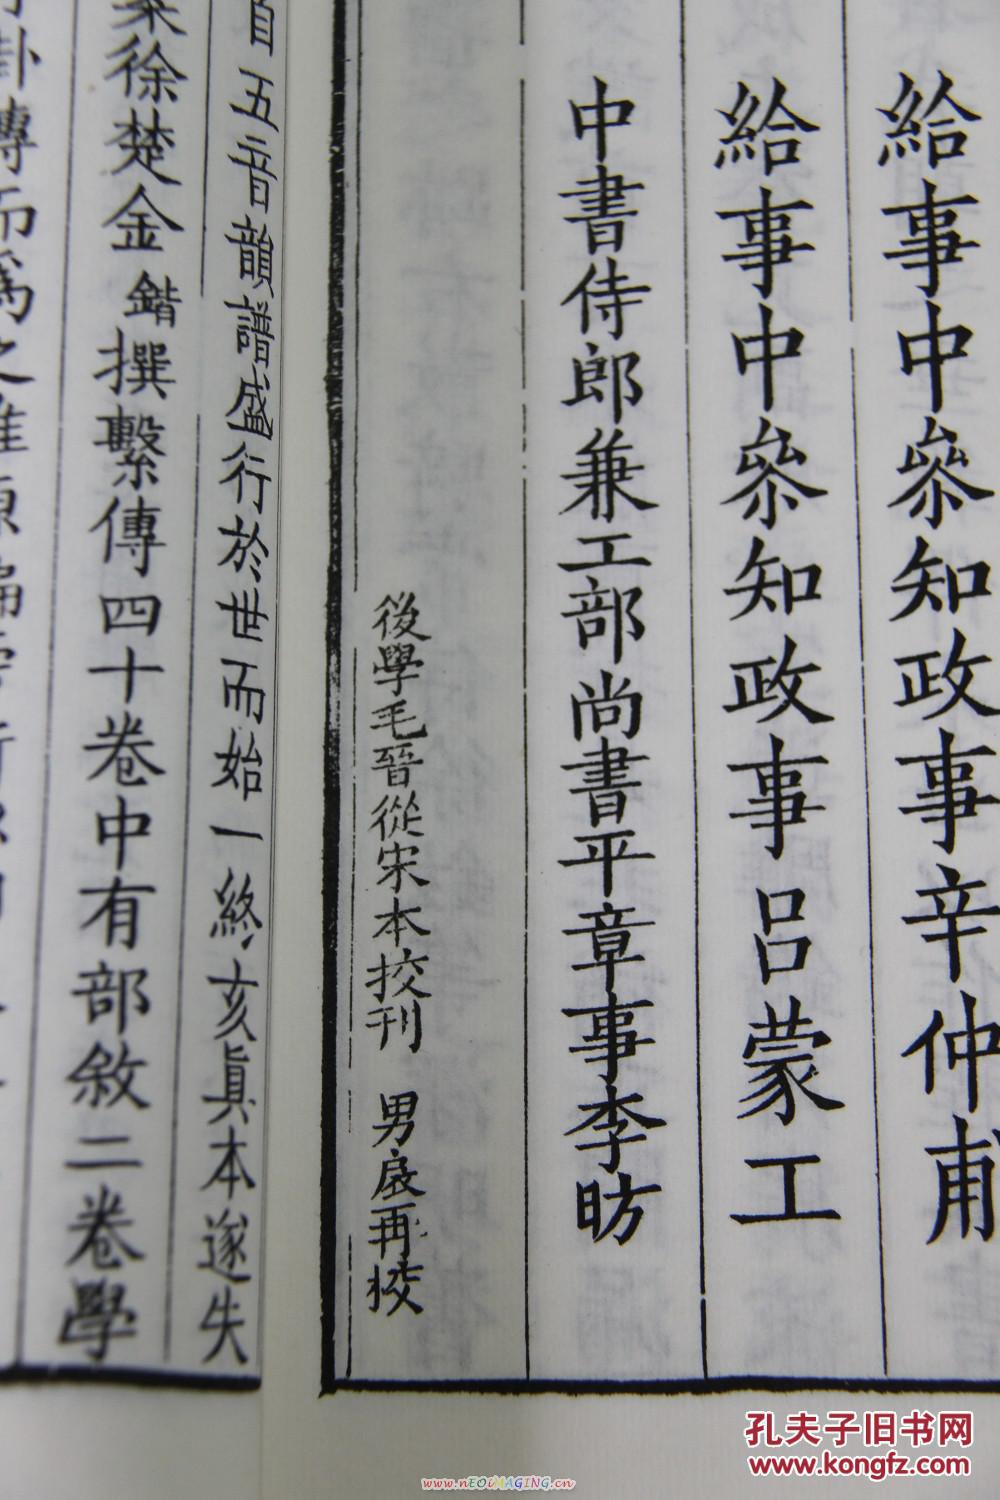 給事中叅知政事辛仲甫
給事中叅知政事吕蒙工
中書侍郎兼工部尚書平章事李昉
後學毛晉從宋本挍刊 男扆再挍
五音韻譜盛行於世而始一終亥眞本遂失
徐楚金鍇撰繫傳四十卷中有部敘二卷學
卦傳而爲之
孔夫子旧书网
www.kongfz.com
www.nEOiMAGING.cn